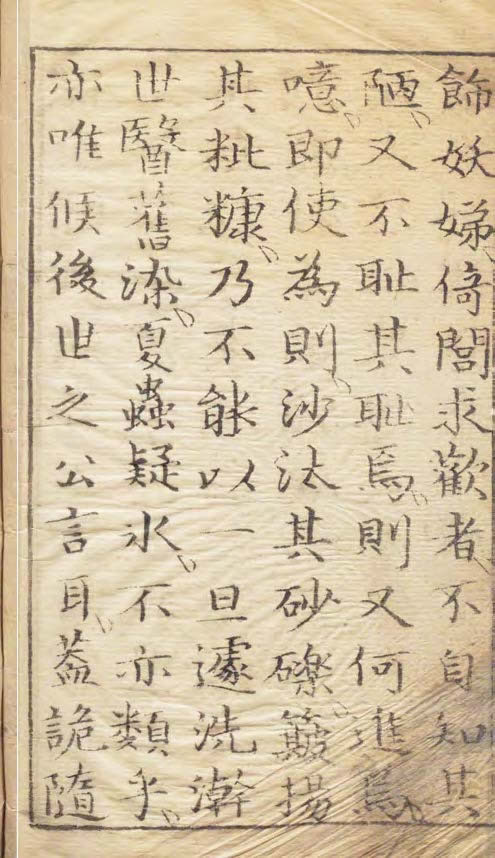 飾妖娣倚閭求歡者、不自知其
陋、又不耻其耻焉、則又何進焉、
噫、即使為則、沙汰其砂礫、簸揚
其粃糠、乃不能以一旦遽洗澣
世醫舊染、夏蟲疑氷、不亦類乎、
亦唯候後世之公言耳、蓋詭隨